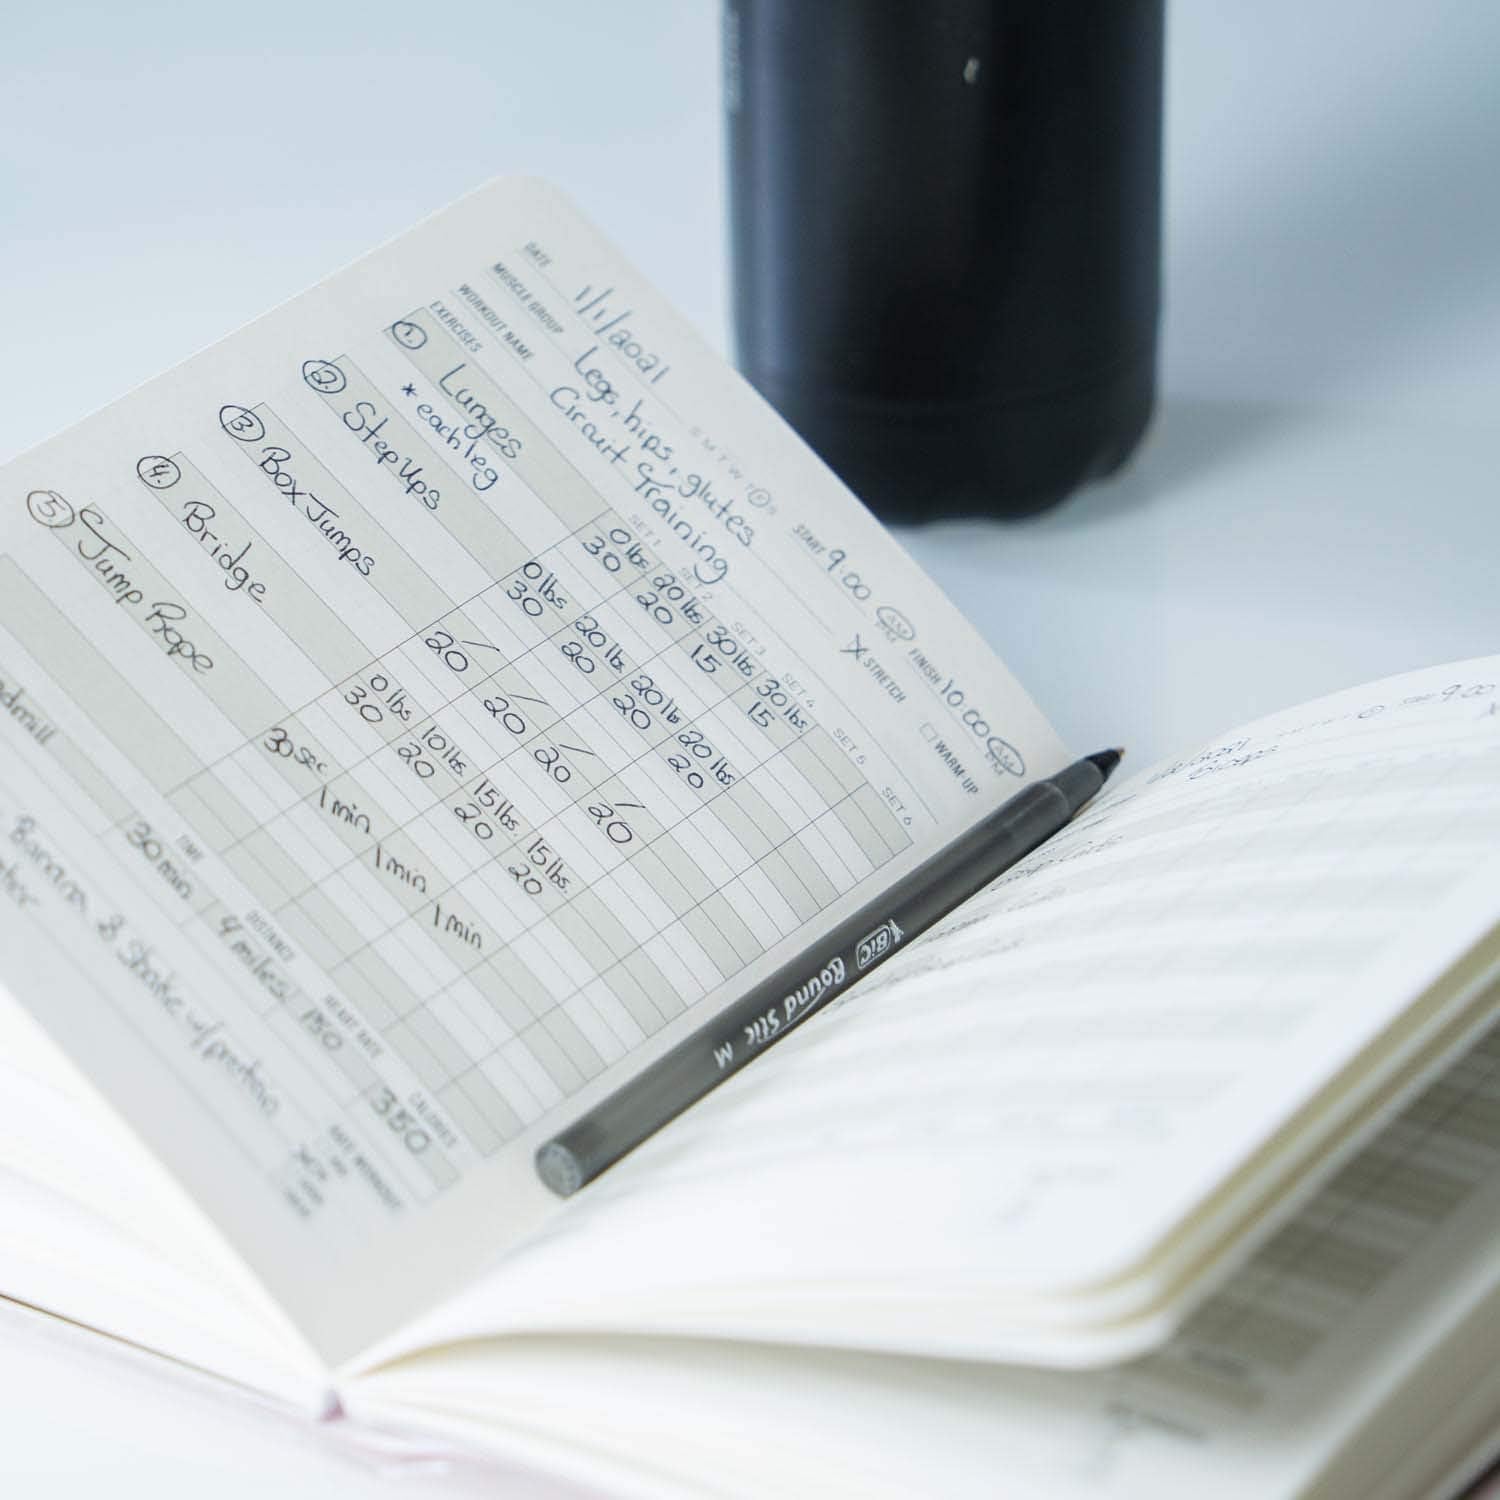 DATE 1/1/2021 S M T W T F S START 9:00 AM PM FINISH 10:00 AM PM
MUSCLE GROUP Legs, hips, glutes X STRETCH WARM-UP
WORKOUT NAME Circuit Training
EXERCISES SET 1 SET 2 SET 3 SET 4 SET 5 SET 6
1. Lunges 0 lbs. 20 lbs 30 lbs 30 lbs.
* each leg 30 20 15 15
2. Step Ups 0 lbs 20 lb. 20 lb 20 lbs
30 20 20 20
3. Box Jumps – – – –
20 20 20 20
4. Bridge 0 lbs. 10 lbs. 15 lbs. 15 lbs.
30 20 20 20
5. Jump Rope 30 sec 1 min 1 min 1 min
TIME DISTANCE HEART RATE CALORIES
30 min 4 miles 150 350
Banana & Shake w/ protein
BIC Round Stic M
9:00